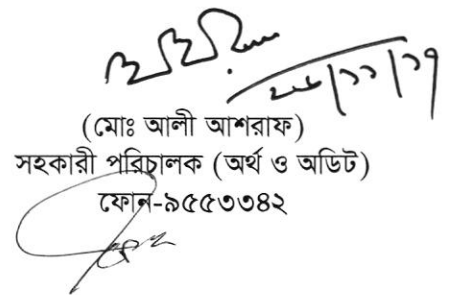 (মোঃ আলী আশরাফ)
সহকারী পরিচালক (অর্থ ও অডিট)
ফোন-৯৫৫৩৩৪২